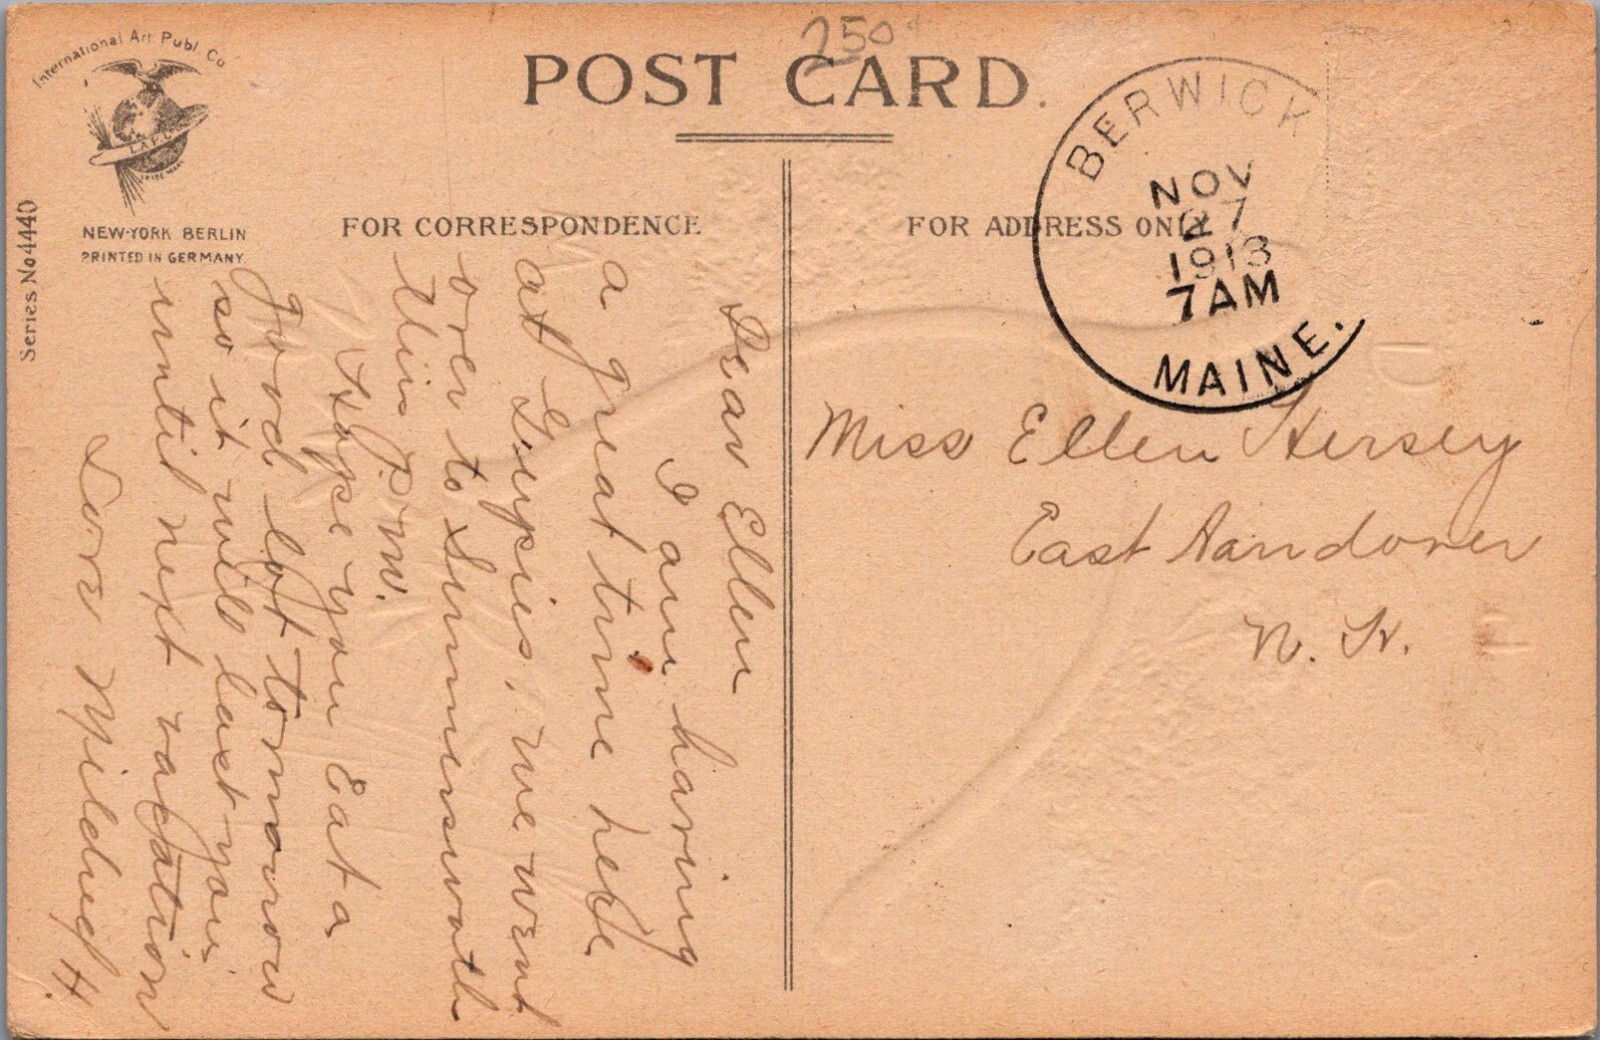 250¢
International Art Publ. Co
I.A.P.C.
TRADE MARK
NEW-YORK BERLIN
PRINTED IN GERMANY
Series No 4440
POST CARD.
FOR CORRESPONDENCE
FOR ADDRESS ONLY
BERWICK
NOV
27
1913
7 AM
MAINE.
Dear Ellen
I am having
a great time here
at Gupies, we went
over to Summersworth
this P.M.
Hope you Eat a
good lot tomorrow
so it will last you
until next vacation
Love Mildred H.
Miss Ellen Hersey
East Andover
N. H.